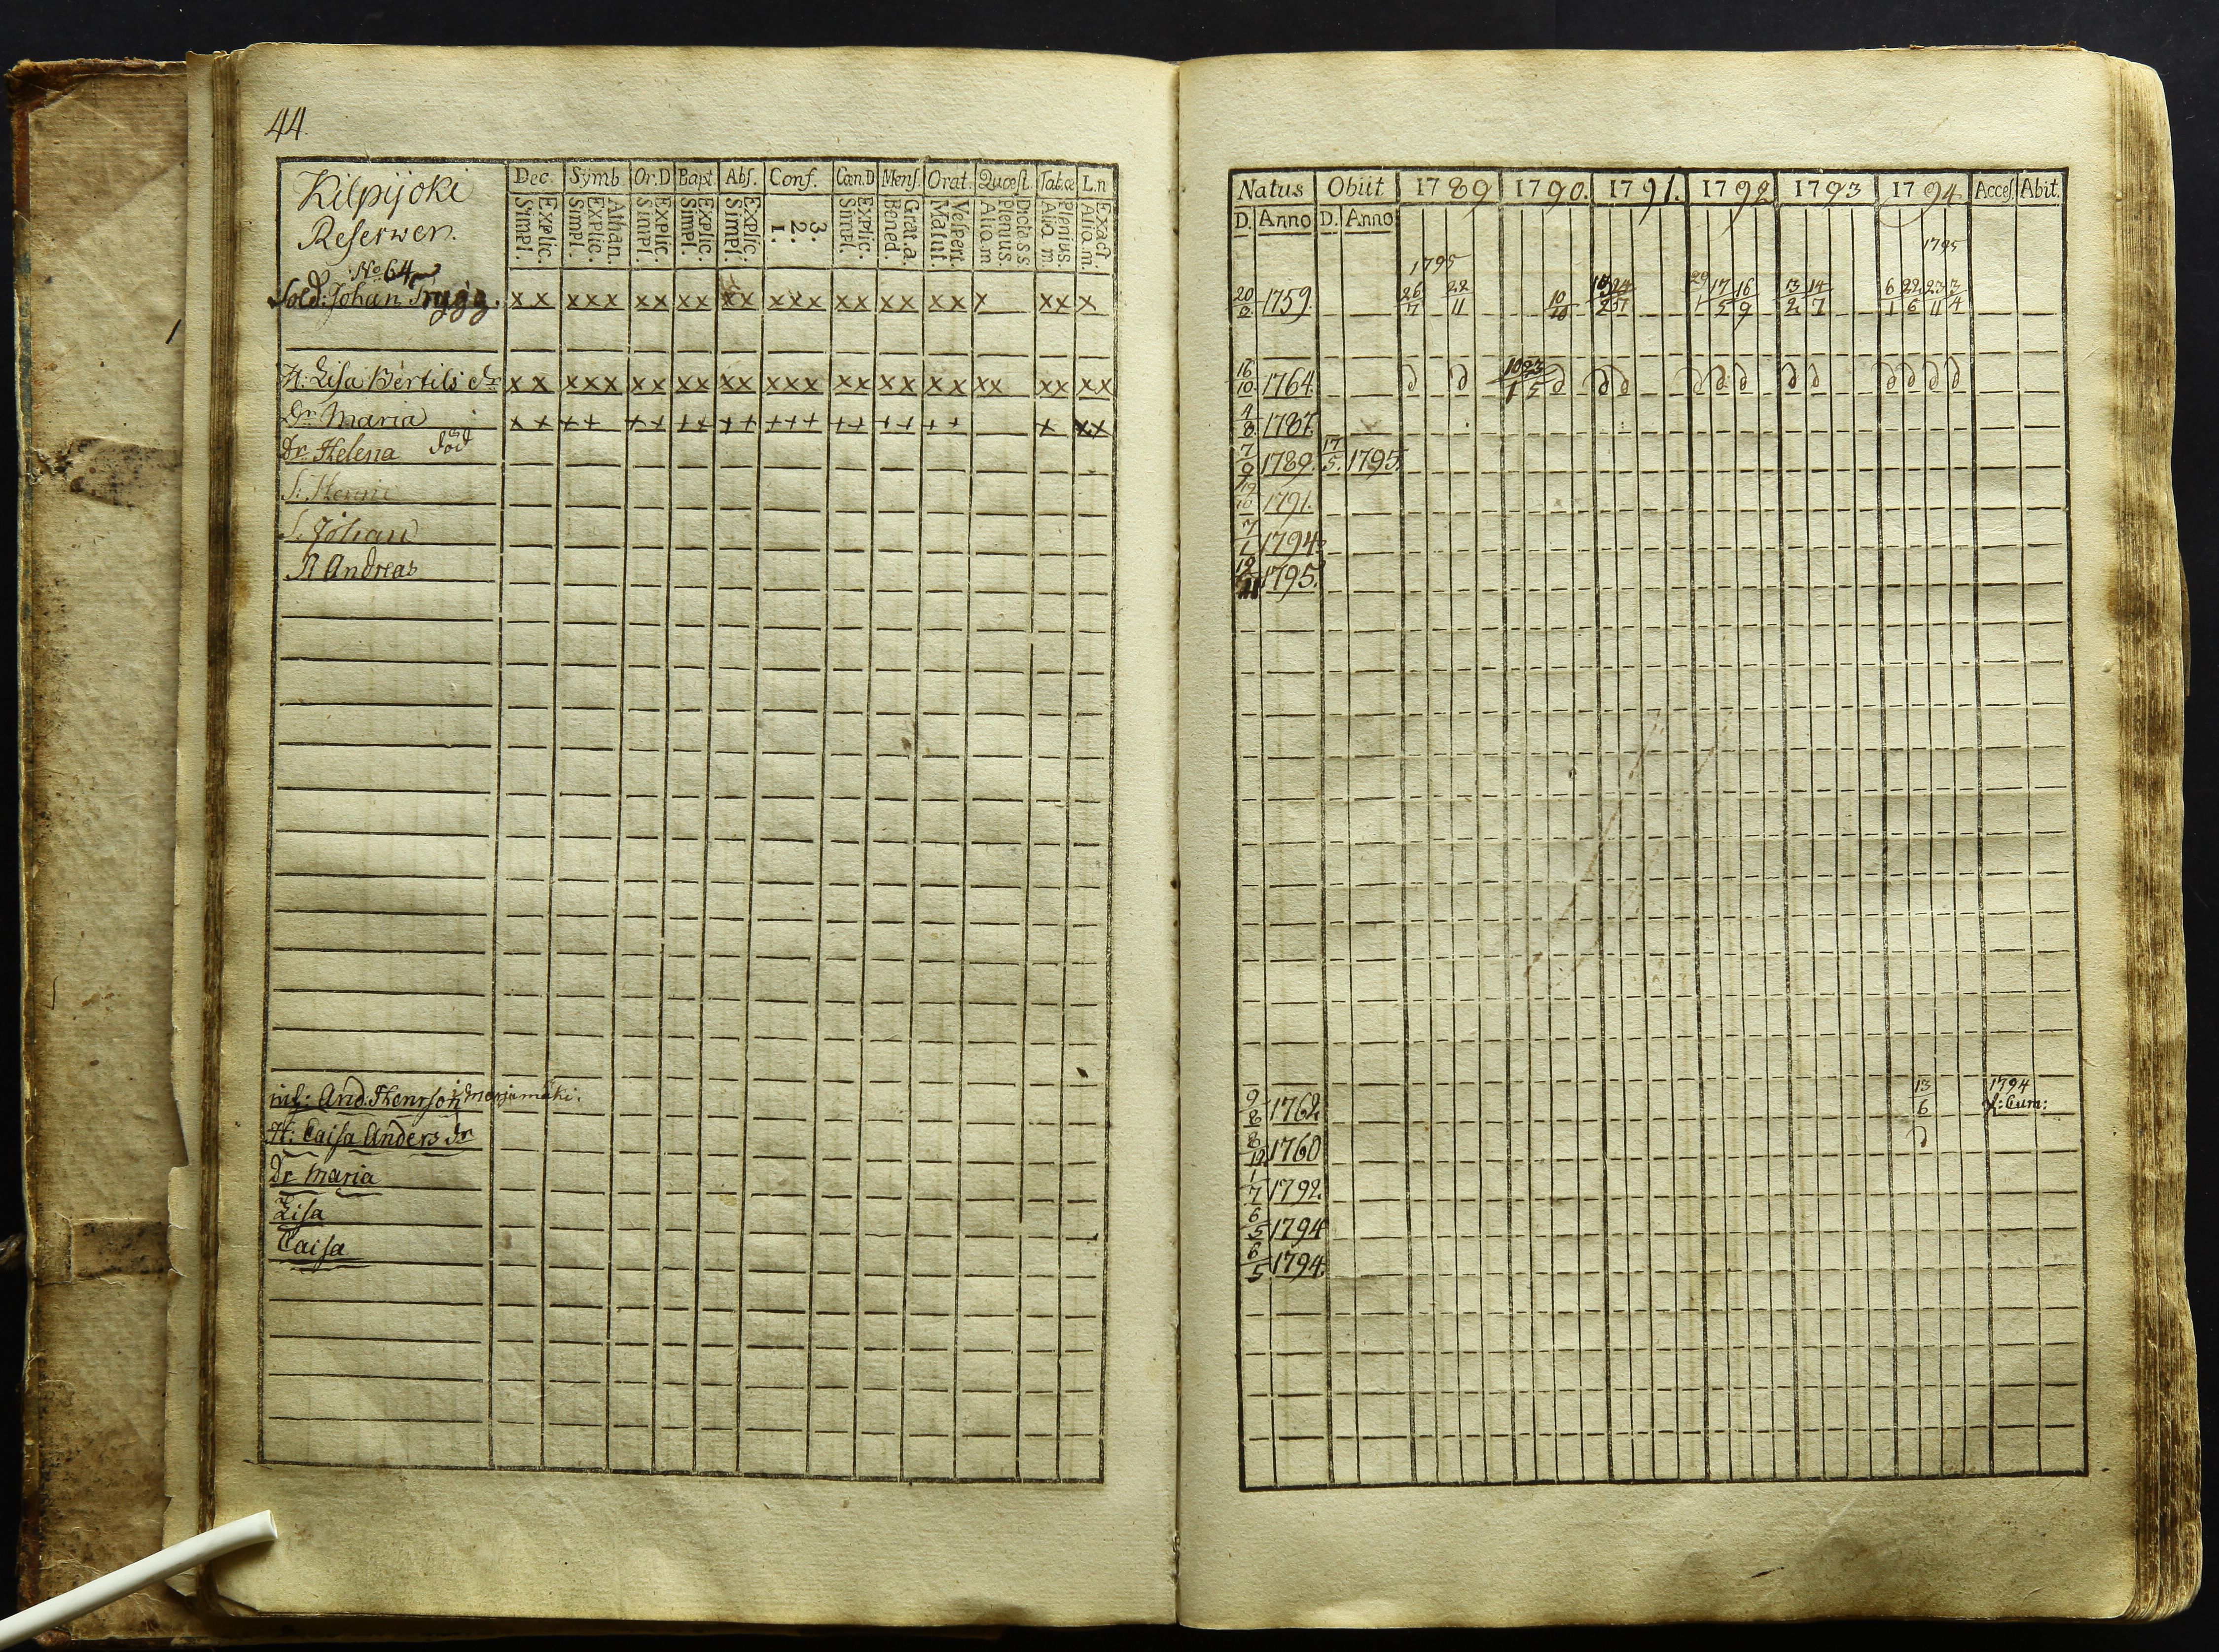 44.
Kilpijoki
Reserwen.
Dec. Symb. Or.D Bapt. Abs. Conf. Cœn.D Mens. Orat. Quœst. Tab.œ L.n
Simpl. Explic. Simpl. Explic. Athan. Simpl. Explic. Simpl. Explic. Simpl. Explic. 1. 2. 3. Simpl. Explic. Bened. Grat.a. Matut. Vespert. Aliq.m Plenius. Dicta s.s. Aliq.m. Plenius. Aliq.m. Exact.
No 64
Sold: Johan Trygg. x x xxx xx xx xx xxx xx xx xx x xx x
H. Lisa Bertils dr x x xxx xx xx xx xxx xx xx xx xx xx xx
Dr. Maria + + ++ ++ ++ ++ +++ ++ ++ ++ + xx
Dr. Helena död
S. Henric
S. Johan
S. Andreas
inh: And. Henrson
H: Caisa Anders dr
Dr Maria
Lisa
Caisa
Natus Obiit 1789 1790. 1791. 1792 1793 1794. Acces. Abit.
D. Anno D. Anno
1795 1795
1759. 26/7 22/11 10/10 17/5 16/9 13/2 14/7 6/1 22/6 23/11 3/4
16/10 1764.
4/8 1787.
7/9 1789. 17/5. 1795.
1791.
1794.
1795.
9/8 1762 13/6 1794
8/12 1760
1/7 1792.
6/5 1794
6/5 1794.